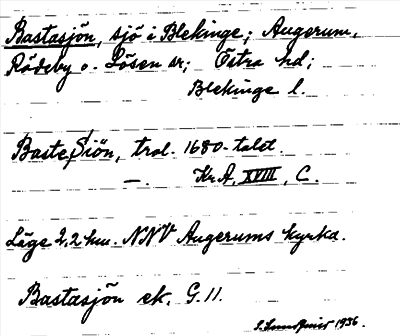 Bastasjön, sjö i Blekinge; Augerum,
Rödeby o. Lösen sr; Östra hd;
Blekinge l.
Baste Siön, trol. 1680-talet.
—. Kr.A, XVIII, C.
Läge 2,2 km. NNV Augerums kyrka.
Bastasjön ek. G.11.
1936.